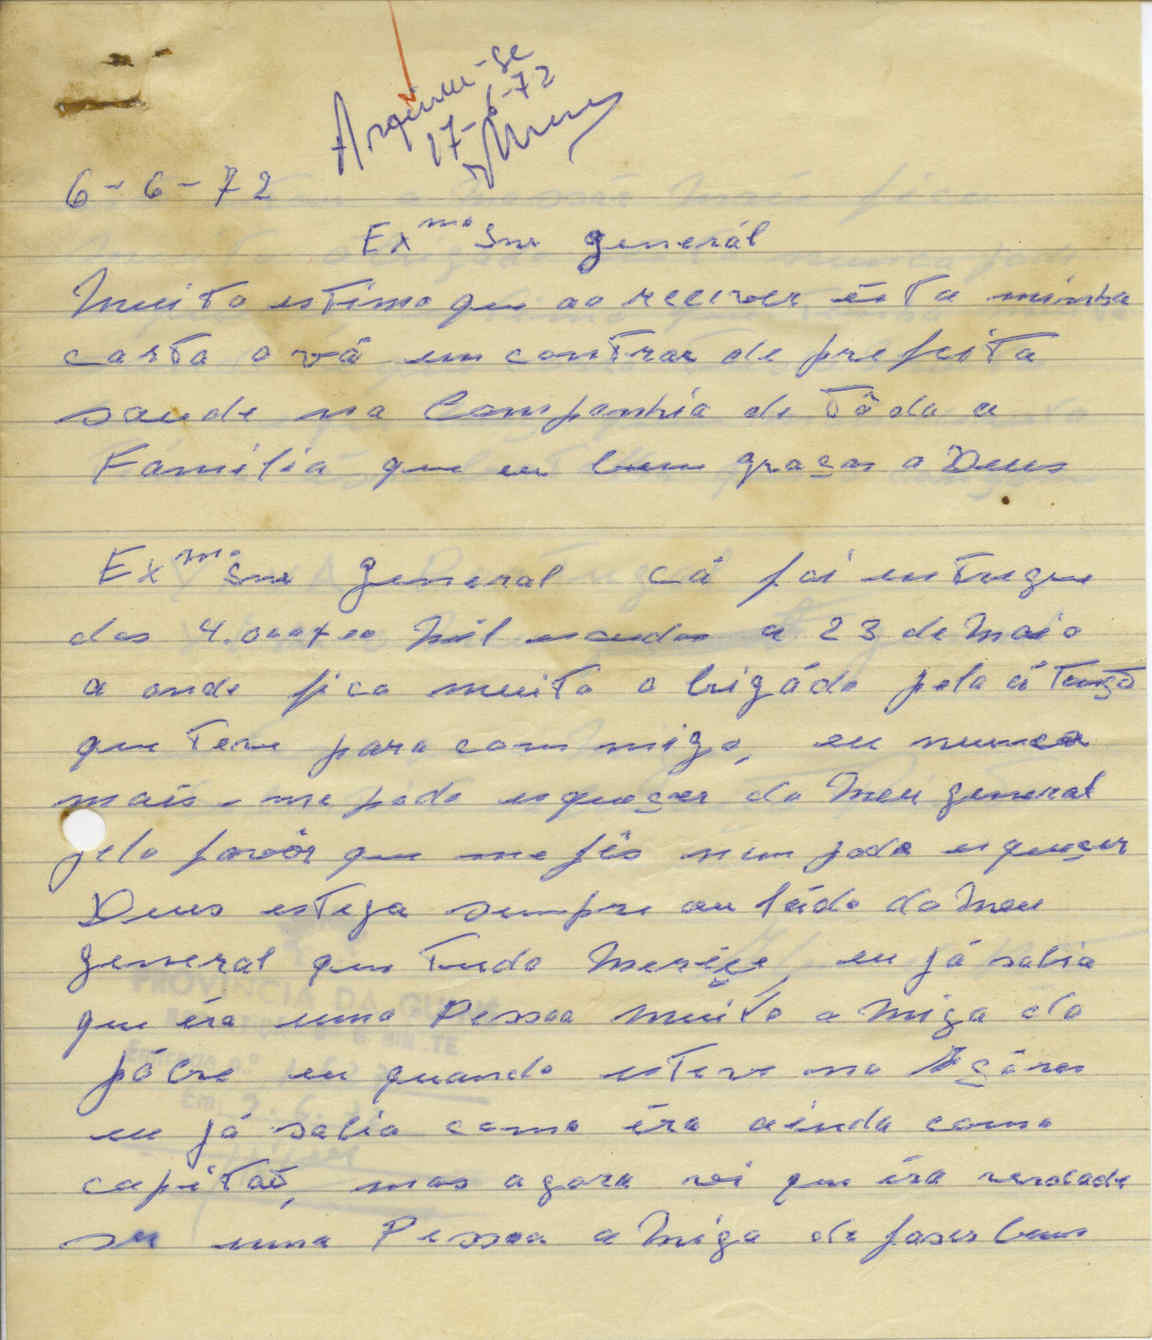 Arquive-se
17-6-72
6-6-72
Exmo Snr generál
Muito estimo que ao receiver ésta minha
carta o vá em contrar de prefeita
saude na Companhia de tôda a
Família que eu bem graças a Deus
Exmo Snr general cá foi entregue
dos 4.000+00 Mil escudos a 23 de Maio
a onde fico muito o brigádo pela átenção
que teve para com migo, eu nunca
mais me podo esqueçer do Meu general
pelo favôr que me fês num podo esqueçer
Deus esteja sempre au ládo do Meu
general que tudo Meriçe, eu já sabia
que éra uma Pessoa muito a miga do
póbre eu quando esteve no Açôres
eu já sabia como éra ainda como
capitão, mas agora vi que éra verdade
ser uma Pessoa a Miga de faser bem
PROVÍNCIA DA GUINÉ